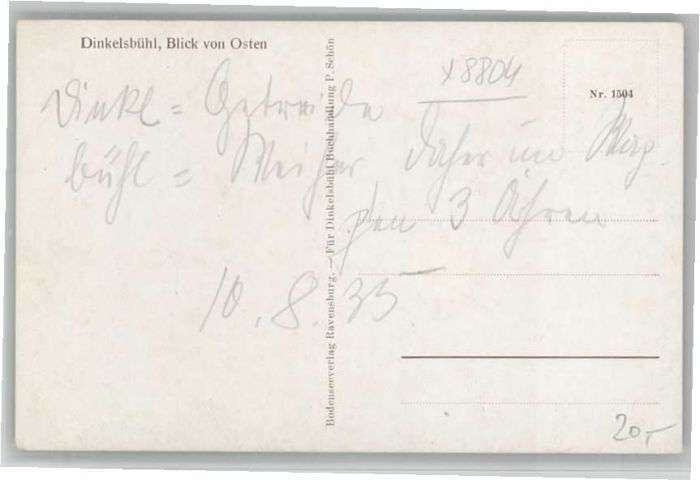 Dinkelsbühl, Blick von Osten
x 8804
Nr. 1504
Dinkl = Getreide
bühl = Weiher daher im Wap-
pen 3 Ähren
10. 8. 35
Bodenseeverlag Ravensburg. — Für Dinkelsbühl Buchhandlung P. Schön
20,-